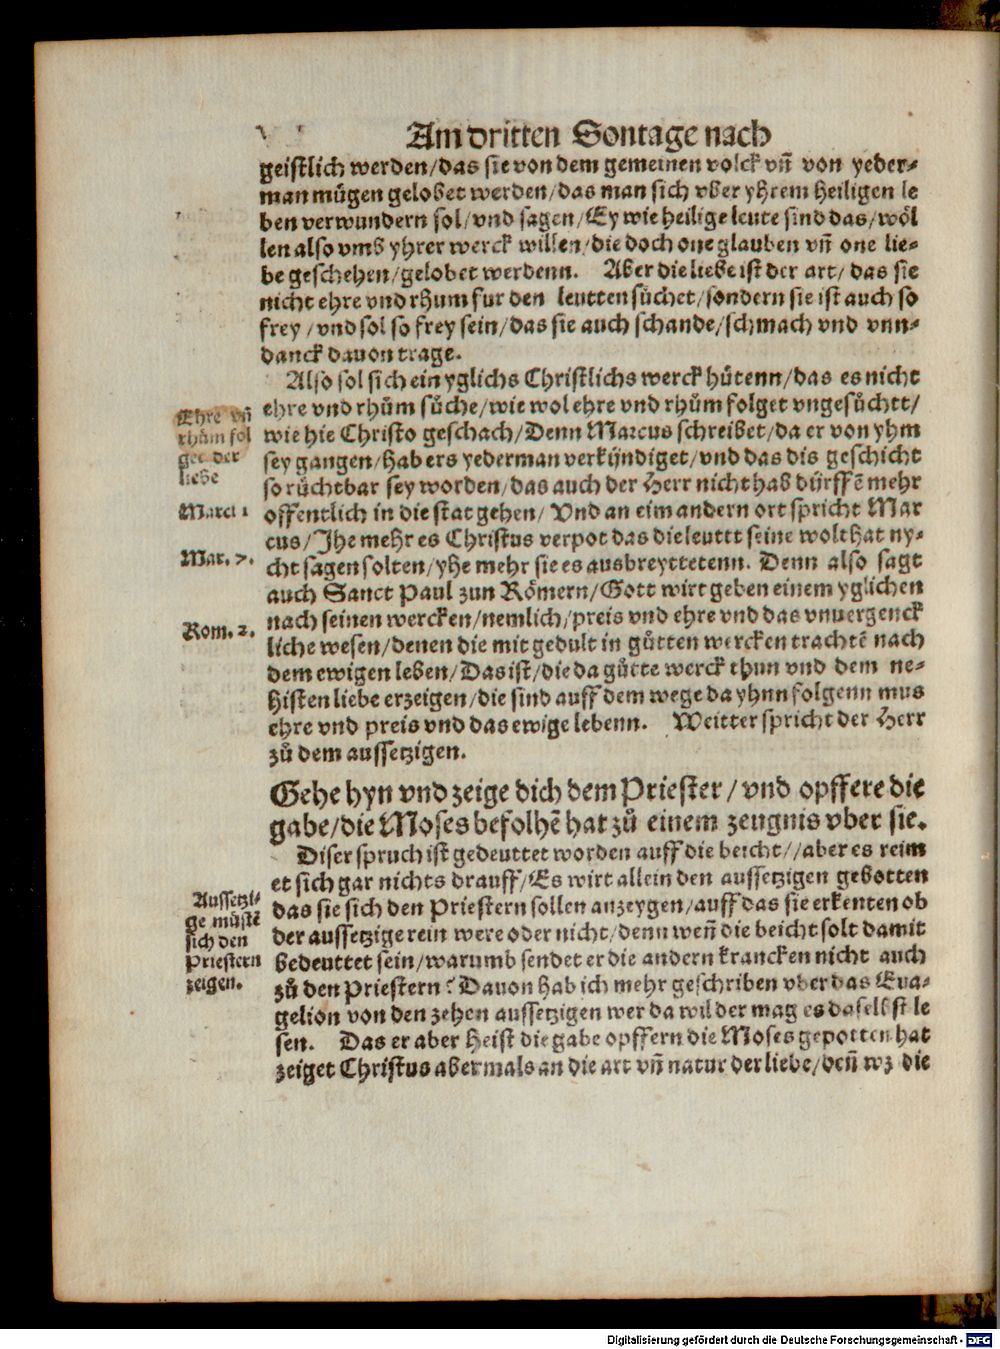 Am dritten Sontage nach
geistlich werden/das sie von dem gemeinen volck vñ von yeder-
man mügen gelobet werden/das man sich vber yhrem heiligen le
ben verwundern sol/vnd sagen/Ey wie heilige leute sind das/wöl
len also vmb yhrer werck willen/die doch one glauben vñ one lie-
be geschehen/gelobet werdenn. Aber die liebe ist der art/ das sie
nicht ehre vnd rhum fur den leutten süchet/sondern sie ist auch so
frey/vnd sol so frey sein/das sie auch schande/schmach vnd vnn-
danck dauon trage.
Also sol sich ein yglichs Christlichs werck hütenn/das es nicht
ehre vnd rhům sůche/wie wol ehre vnd rhům folget vngesůchtt/
wie hie Christo geschach/Denn Marcus schreibet/da er von yhm
sey gangen/hab ers yederman verkündiget/vnd das dis geschicht
so rüchtbar sey worden/das auch der Herr nicht hab dürffẽ mehr
offentlich in die stat gehen/ Vnd an eim andern ort spricht Mar
cus/Jhe mehr es Christus verpot das die leuttt seine wolthat ny-
cht sagen solten/yhe mehr sie es ausbreyttetenn. Denn also sagt
auch Sanct Paul zun Römern/Gott wirt geben einem yglichen
nach seinen wercken/nemlich/preis vnd ehre vnd das vnuergenck
liche wesen/denen die mit gedult in gůtten wercken trachtẽ nach
dem ewigen leben/Das ist/die da gůtte werck thun vnd dem ne-
histen liebe erzeigen/die sind auff dem wege da yhnn folgenn mus
ehre vnd preis vnd das ewige lebenn. Weitter spricht der Herr
zů dem aussetzigen.
Ehre vñ
rhům fol
get der
liebe
Marci 1
Mar. 7.
Rom. 2.
Gehe hyn vnd zeige dich dem Priester/ vnd opffere die
gabe/die Moses befolhẽ hat zů einem zeugnis vber sie.
Diser spruch ist gedeuttet worden auff die beicht//aber es reim
et sich gar nichts drauff/Es wirt allein den aussetzigen gebotten
das sie sich den Priestern sollen anzeygen/auff das sie erkenten ob
der aussetzige rein were oder nicht/denn weñ die beicht solt damit
bedeuttet sein/warumb sendet er die andern krancken nicht auch
zů den Priestern? Dauon hab ich mehr geschriben vber das Eua-
gelion von den zehen aussetzigen wer da wil der mag es daselbst le
sen. Das er aber heist die gabe opffern die Moses gepotten hat
zeiget Christus abermals an die art vñ natur der liebe/deñ wz die
Aussetzi-
ge müstẽ
sich den
Priestern
zeigen.
Digitalisierung gefördert durch die Deutsche Forschungsgemeinschaft - DFG